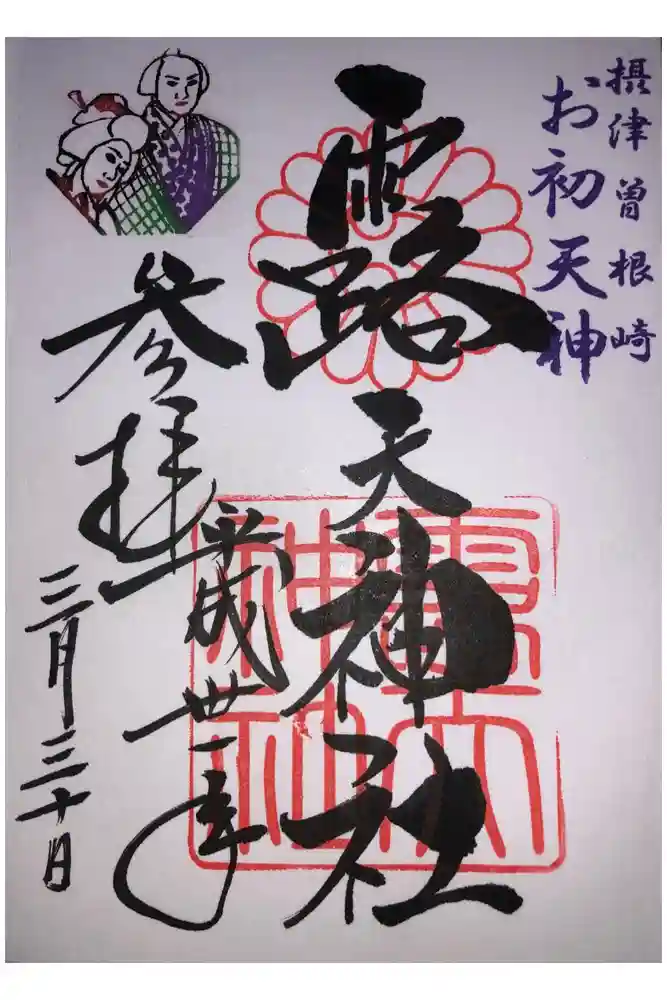 摂津曽根崎
お初天神
露天神社
参拝
平成丗一年
三月三十日